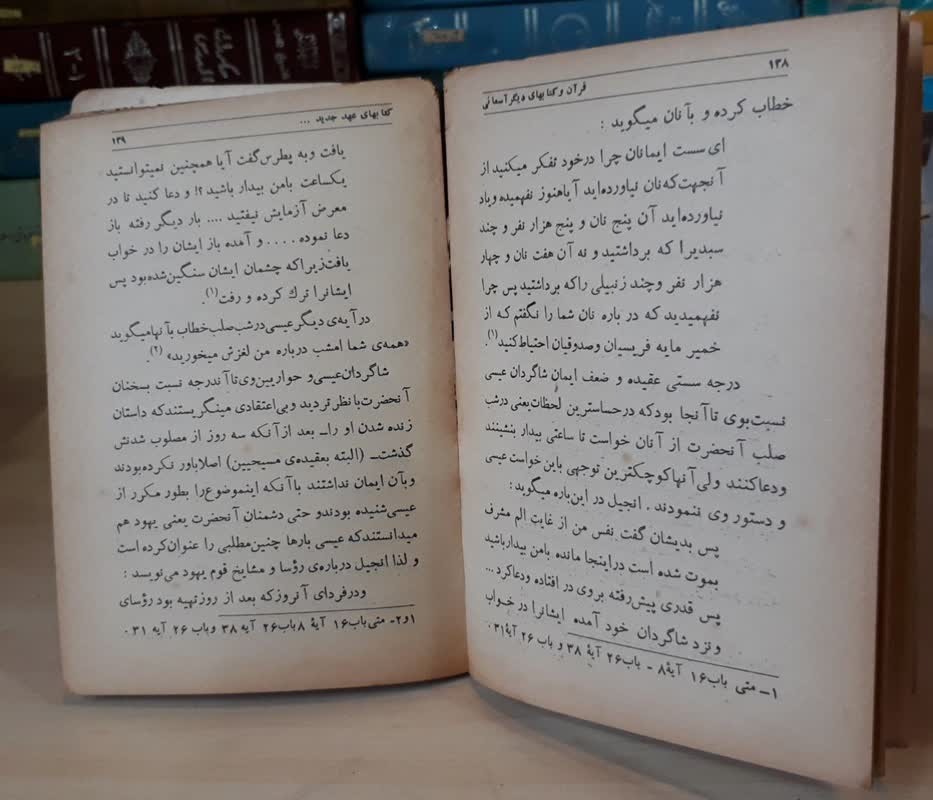 ۱۳۸
قرآن و کتابهای دیگر آسمانی
خطاب کرده و بآنان میگوید :
ای سست ایمانان چرا درخود تفکر میکنید از
آنجهت‌که‌نان نیاورده‌اید آیاهنوز نفهمیده ویاد
نیاورده‌اید آن پنج نان و پنج هزار نفر و چند
سبدیرا که برداشتید و نه آن هفت نان و چهار
هزار نفر وچند زنبیلی راکه برداشتید پس چرا
نفهمیدید که در باره نان شما را نگفتم که از
خمیر مایه فریسیان وصدوقیان احتیاط‌کنید(۱).
درجه سستی عقیده و ضعف ایمان شاگردان عیسی
نسبت‌بوی تاآنجا بودکه درحساسترین لحظات‌یعنی درشب
صلب آنحضرت از آنان خواست تا ساعتی بیدار بنشینند
ودعاکنند ولی‌آنهاکوچکترین توجهی باین خواست عیسی
و دستور وی ننمودند . انجیل در این‌باره میگوید :
پس بدیشان گفت نفس من از غایت الم مشرف
بموت شده است دراینجا مانده بامن بیدارباشید
پس قدری پیش‌رفته بروی در افتاده ودعاکرد ...
ونزد شاگردان خود آمده ایشانرا در خواب
۱ــ متی باب۱۶ آیهٔ۸ - باب۲۶ آیهٔ ۳۸ و باب ۲۶ آیهٔ۳۱.
کتابهای عهد جدید ...
۱۳۹
یافت وبه پطرس‌گفت آیا همچنین نمیتوانستید
یکساعت بامن بیدار باشید ؟! و دعا کنید تا در
معرض آزمایش نیفتید .... بار دیگر رفته باز
دعا نموده .... و آمده باز ایشان را در خواب
یافت‌زیراکه چشمان ایشان سنگین‌شده‌بود پس
ایشانرا ترك کرده و رفت(۱).
درآیه‌ی دیگرعیسی درشب‌صلب‌خطاب بآنهامیگوید
«همه‌ی شما امشب درباره من لغزش میخورید» (۲).
شاگردان‌عیسی‌و حواریین‌وی‌تاآندرجه نسبت بسخنان
آنحضرت‌بانظر تردید وبی‌اعتقادی مینگریستندکه داستان
زنده شدن او راـ بعد ازآنکه سه روز از مصلوب شدنش
گذشت‌ـ (البته بعقیده‌ی مسیحیین) اصلاباور نکرده‌بودند
وبآن ایمان نداشتند باآنکه اینموضوع‌را بطور مکرر از
عیسی‌شنیده بودندو حتی دشمنان آنحضرت یعنی یهود هم
میدانستندکه عیسی بارها چنین‌مطلبی را عنوان‌کرده است
و لذا انجیل درباره‌ی رؤسا و مشایخ قوم یهود می‌نویسد :
ودرفردای آنروزکه بعد از روزتهیه بود رؤسای
۱و۲ـ متی‌باب۱۶ آیهٔ ۸باب۲۶ آیه ۳۸ وباب ۲۶ آیه ۳۱.